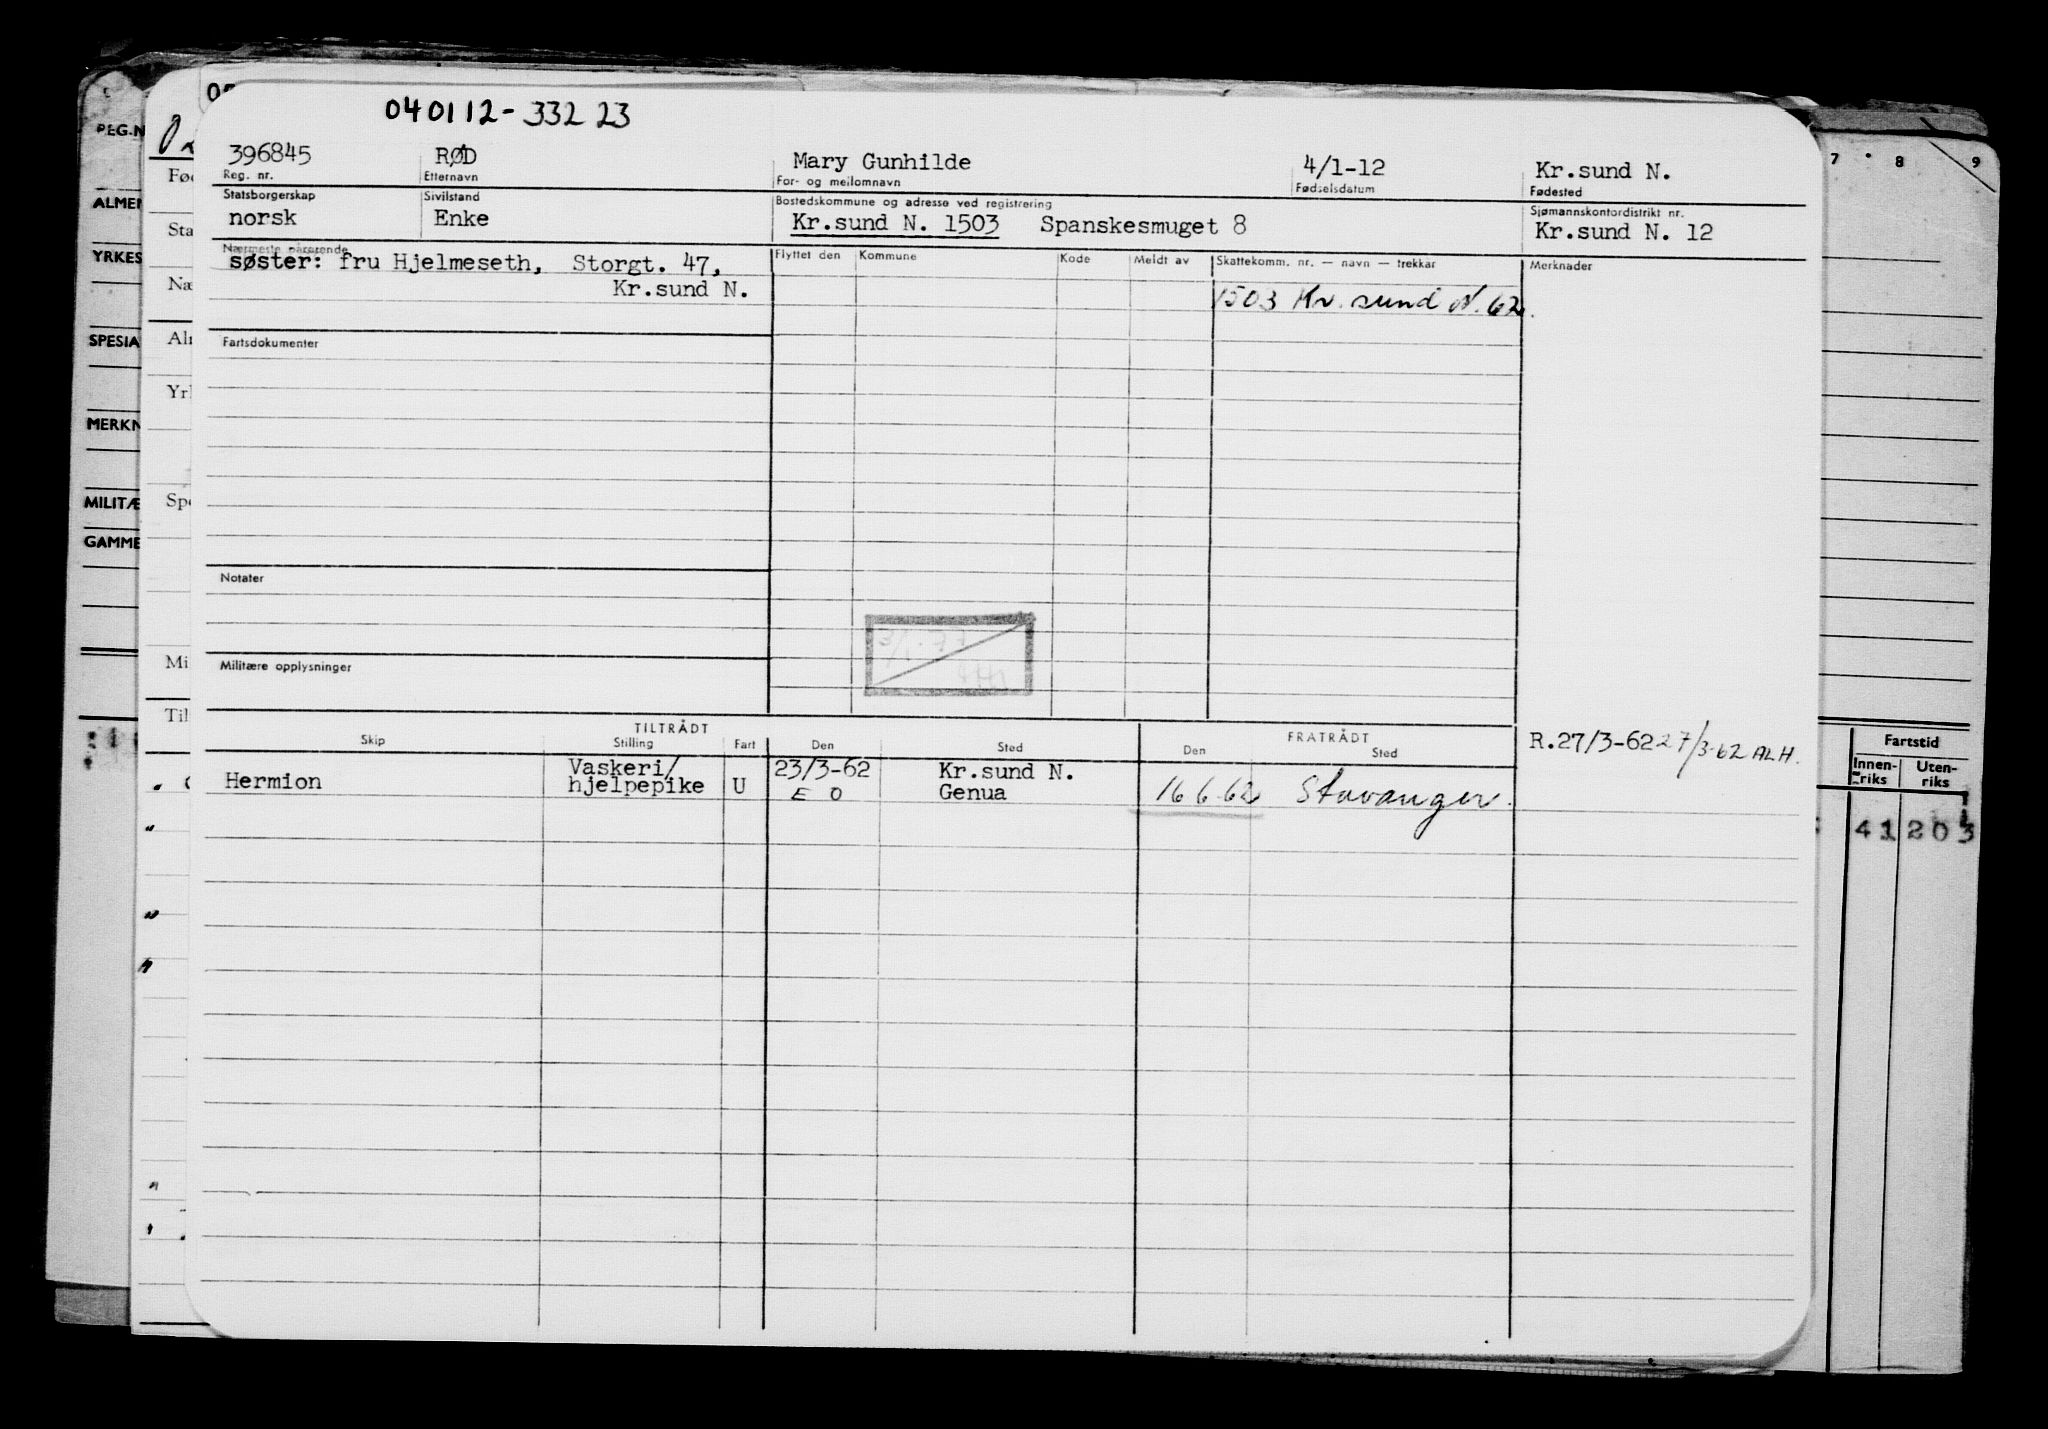 040112-33223
396845 RØD Mary Gunhilde 4/1-12 Kr.sund N.
Reg. nr. Etternavn For- og mellomnavn Fødselsdatum Fødested
Statsborgerskap Sivilstand Bostedskommune og adresse ved registrering Sjømannskontordistrikt nr.
norsk Enke Kr.sund N. 1503 Spanskesmuget 8 Kr.sund N. 12
Nærmeste pårørende Flyttet den Kommune Kode Meldt av Skattekomm. nr. — navn — trekkår Merknader
søster: fru Hjelmeseth, Storgt. 47,
Kr.sund N. 1503 Kr. sund N. 62.
Fartsdokumenter
Notater
Militære opplysninger
TILTRÅDT FRATRÅDT
Skip Stilling Fart Den Sted Den Sted
R.27/3-62 27/3-62 ALH.
Hermion Vaskeri/ 23/3-62 Kr.sund N.
hjelpepike U E O Genua 16 6 62 Stavanger.
REG.N
ALMEN
YRKES
SPESIA
MERKN
MILITÆ
GAMME
Fød
Sta
Næ
Alm
Yrl
Spe
Mi
Til
7 8 9
Fartstid
Innen-riks Uten-riks
41 203